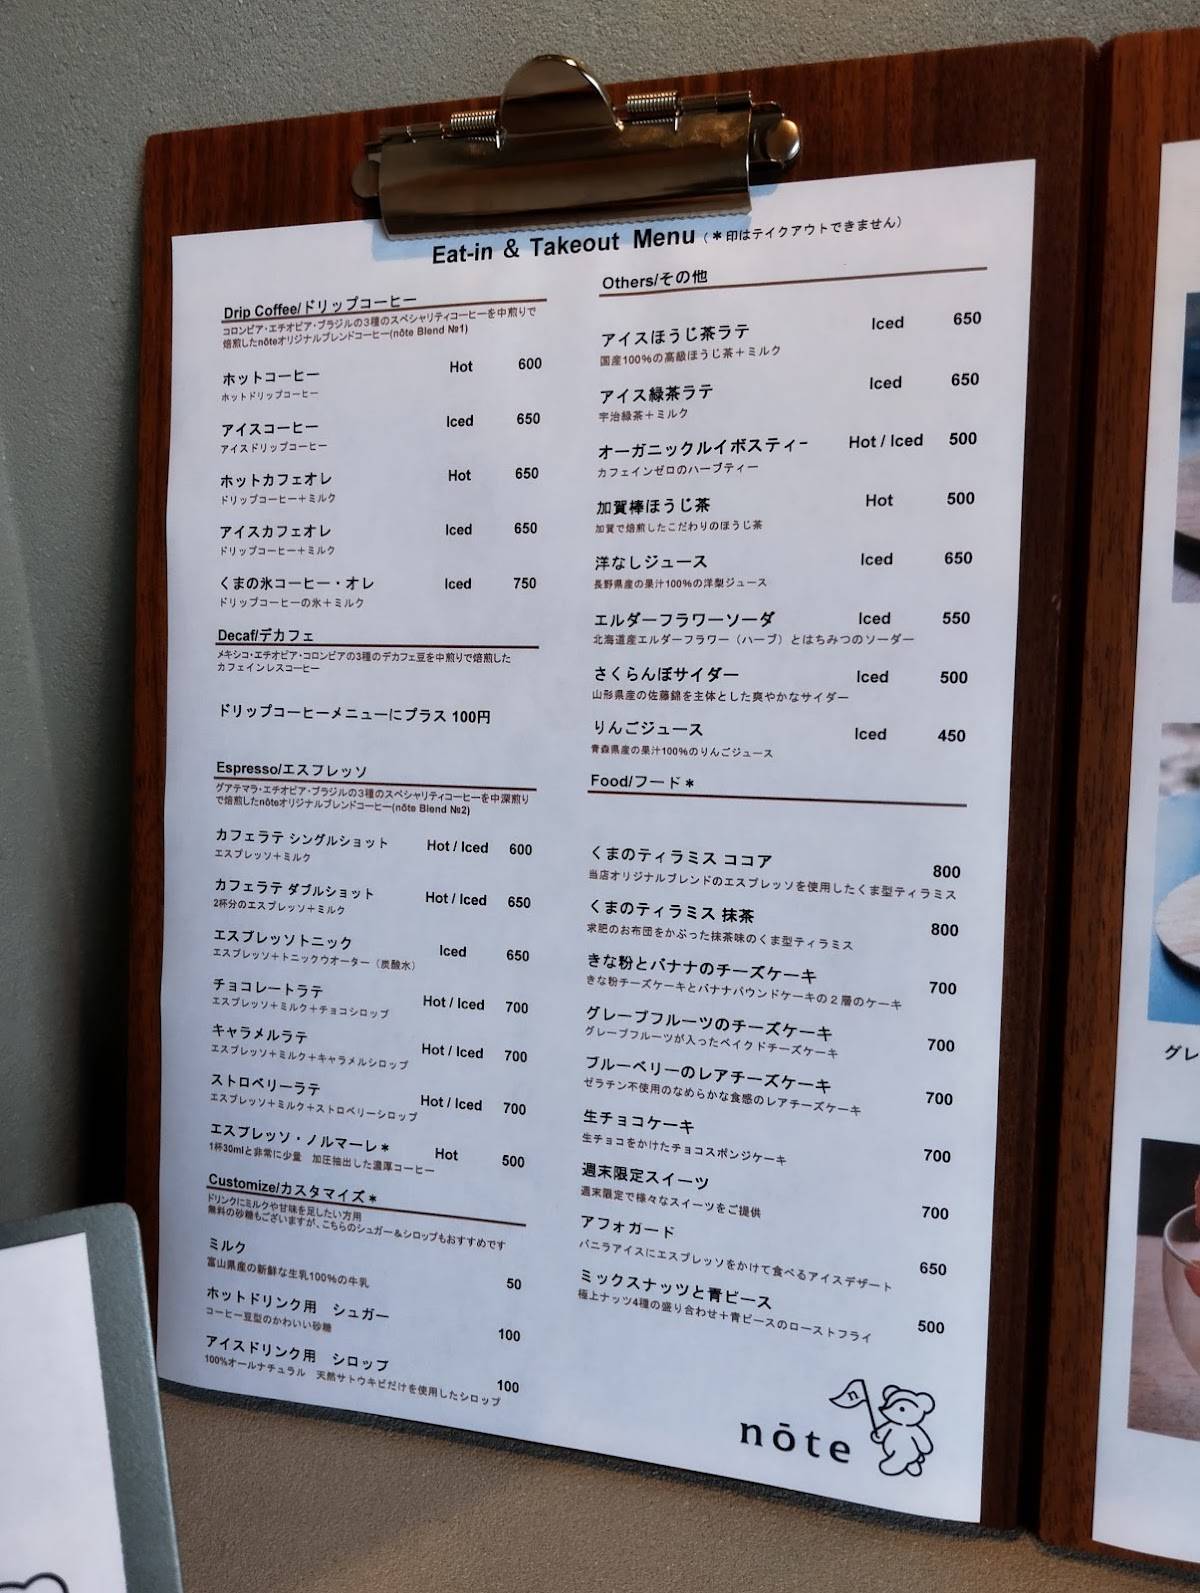 Eat-in & Takeout Menu（＊印はテイクアウトできません）
Drip Coffee/ドリップコーヒー
コロンビア・エチオピア・ブラジルの３種のスペシャリティコーヒーを中煎りで
焙煎したnōteオリジナルブレンドコーヒー(nōte Blend №1)
ホットコーヒー Hot 600
ホットドリップコーヒー
アイスコーヒー Iced 650
アイスドリップコーヒー
ホットカフェオレ Hot 650
ドリップコーヒー＋ミルク
アイスカフェオレ Iced 650
ドリップコーヒー＋ミルク
くまの氷コーヒー・オレ Iced 750
ドリップコーヒーの氷＋ミルク
Decaf/デカフェ
メキシコ・エチオピア・コロンビアの3種のデカフェ豆を中煎りで焙煎した
カフェインレスコーヒー
ドリップコーヒーメニューにプラス 100円
Espresso/エスプレッソ
グアテマラ・エチオピア・ブラジルの３種のスペシャリティコーヒーを中深煎り
で焙煎したnōteオリジナルブレンドコーヒー(nōte Blend №2)
カフェラテ シングルショット Hot / Iced 600
エスプレッソ＋ミルク
カフェラテ ダブルショット Hot / Iced 650
2杯分のエスプレッソ＋ミルク
エスプレッソトニック Iced 650
エスプレッソ＋トニックウオーター（炭酸水）
チョコレートラテ Hot / Iced 700
エスプレッソ＋ミルク＋チョコシロップ
キャラメルラテ Hot / Iced 700
エスプレッソ＋ミルク＋キャラメルシロップ
ストロベリーラテ Hot / Iced 700
エスプレッソ＋ミルク＋ストロベリーシロップ
エスプレッソ・ノルマーレ＊ Hot 500
1杯30mlと非常に少量　加圧抽出した濃厚コーヒー
Customize/カスタマイズ＊
ドリンクにミルクや甘味を足したい方用
無料の砂糖もございますが、こちらのシュガー＆シロップもおすすめです
ミルク 50
富山県産の新鮮な生乳100%の牛乳
ホットドリンク用　シュガー 100
コーヒー豆型のかわいい砂糖
アイスドリンク用　シロップ 100
100%オールナチュラル　天然サトウキビだけを使用したシロップ
Others/その他
アイスほうじ茶ラテ Iced 650
国産100%の高級ほうじ茶＋ミルク
アイス緑茶ラテ Iced 650
宇治緑茶＋ミルク
オーガニックルイボスティー Hot / Iced 500
カフェインゼロのハーブティー
加賀棒ほうじ茶 Hot 500
加賀で焙煎したこだわりのほうじ茶
洋なしジュース Iced 650
長野県産の果汁100%の洋梨ジュース
エルダーフラワーソーダ Iced 550
北海道産エルダーフラワー（ハーブ）とはちみつのソーダー
さくらんぼサイダー Iced 500
山形県産の佐藤錦を主体とした爽やかなサイダー
りんごジュース Iced 450
青森県産の果汁100%のりんごジュース
Food/フード＊
くまのティラミス ココア 800
当店オリジナルブレンドのエスプレッソを使用したくま型ティラミス
くまのティラミス 抹茶 800
求肥のお布団をかぶった抹茶味のくま型ティラミス
きな粉とバナナのチーズケーキ 700
きな粉チーズケーキとバナナパウンドケーキの２層のケーキ
グレープフルーツのチーズケーキ 700
グレープフルーツが入ったベイクドチーズケーキ
ブルーベリーのレアチーズケーキ 700
ゼラチン不使用のなめらかな食感のレアチーズケーキ
生チョコケーキ 700
生チョコをかけたチョコスポンジケーキ
週末限定スイーツ 700
週末限定で様々なスイーツをご提供
アフォガード 650
バニラアイスにエスプレッソをかけて食べるアイスデザート
ミックスナッツと青ビース 500
極上ナッツ4種の盛り合わせ＋青ビースのローストフライ
n
nōte
グレ